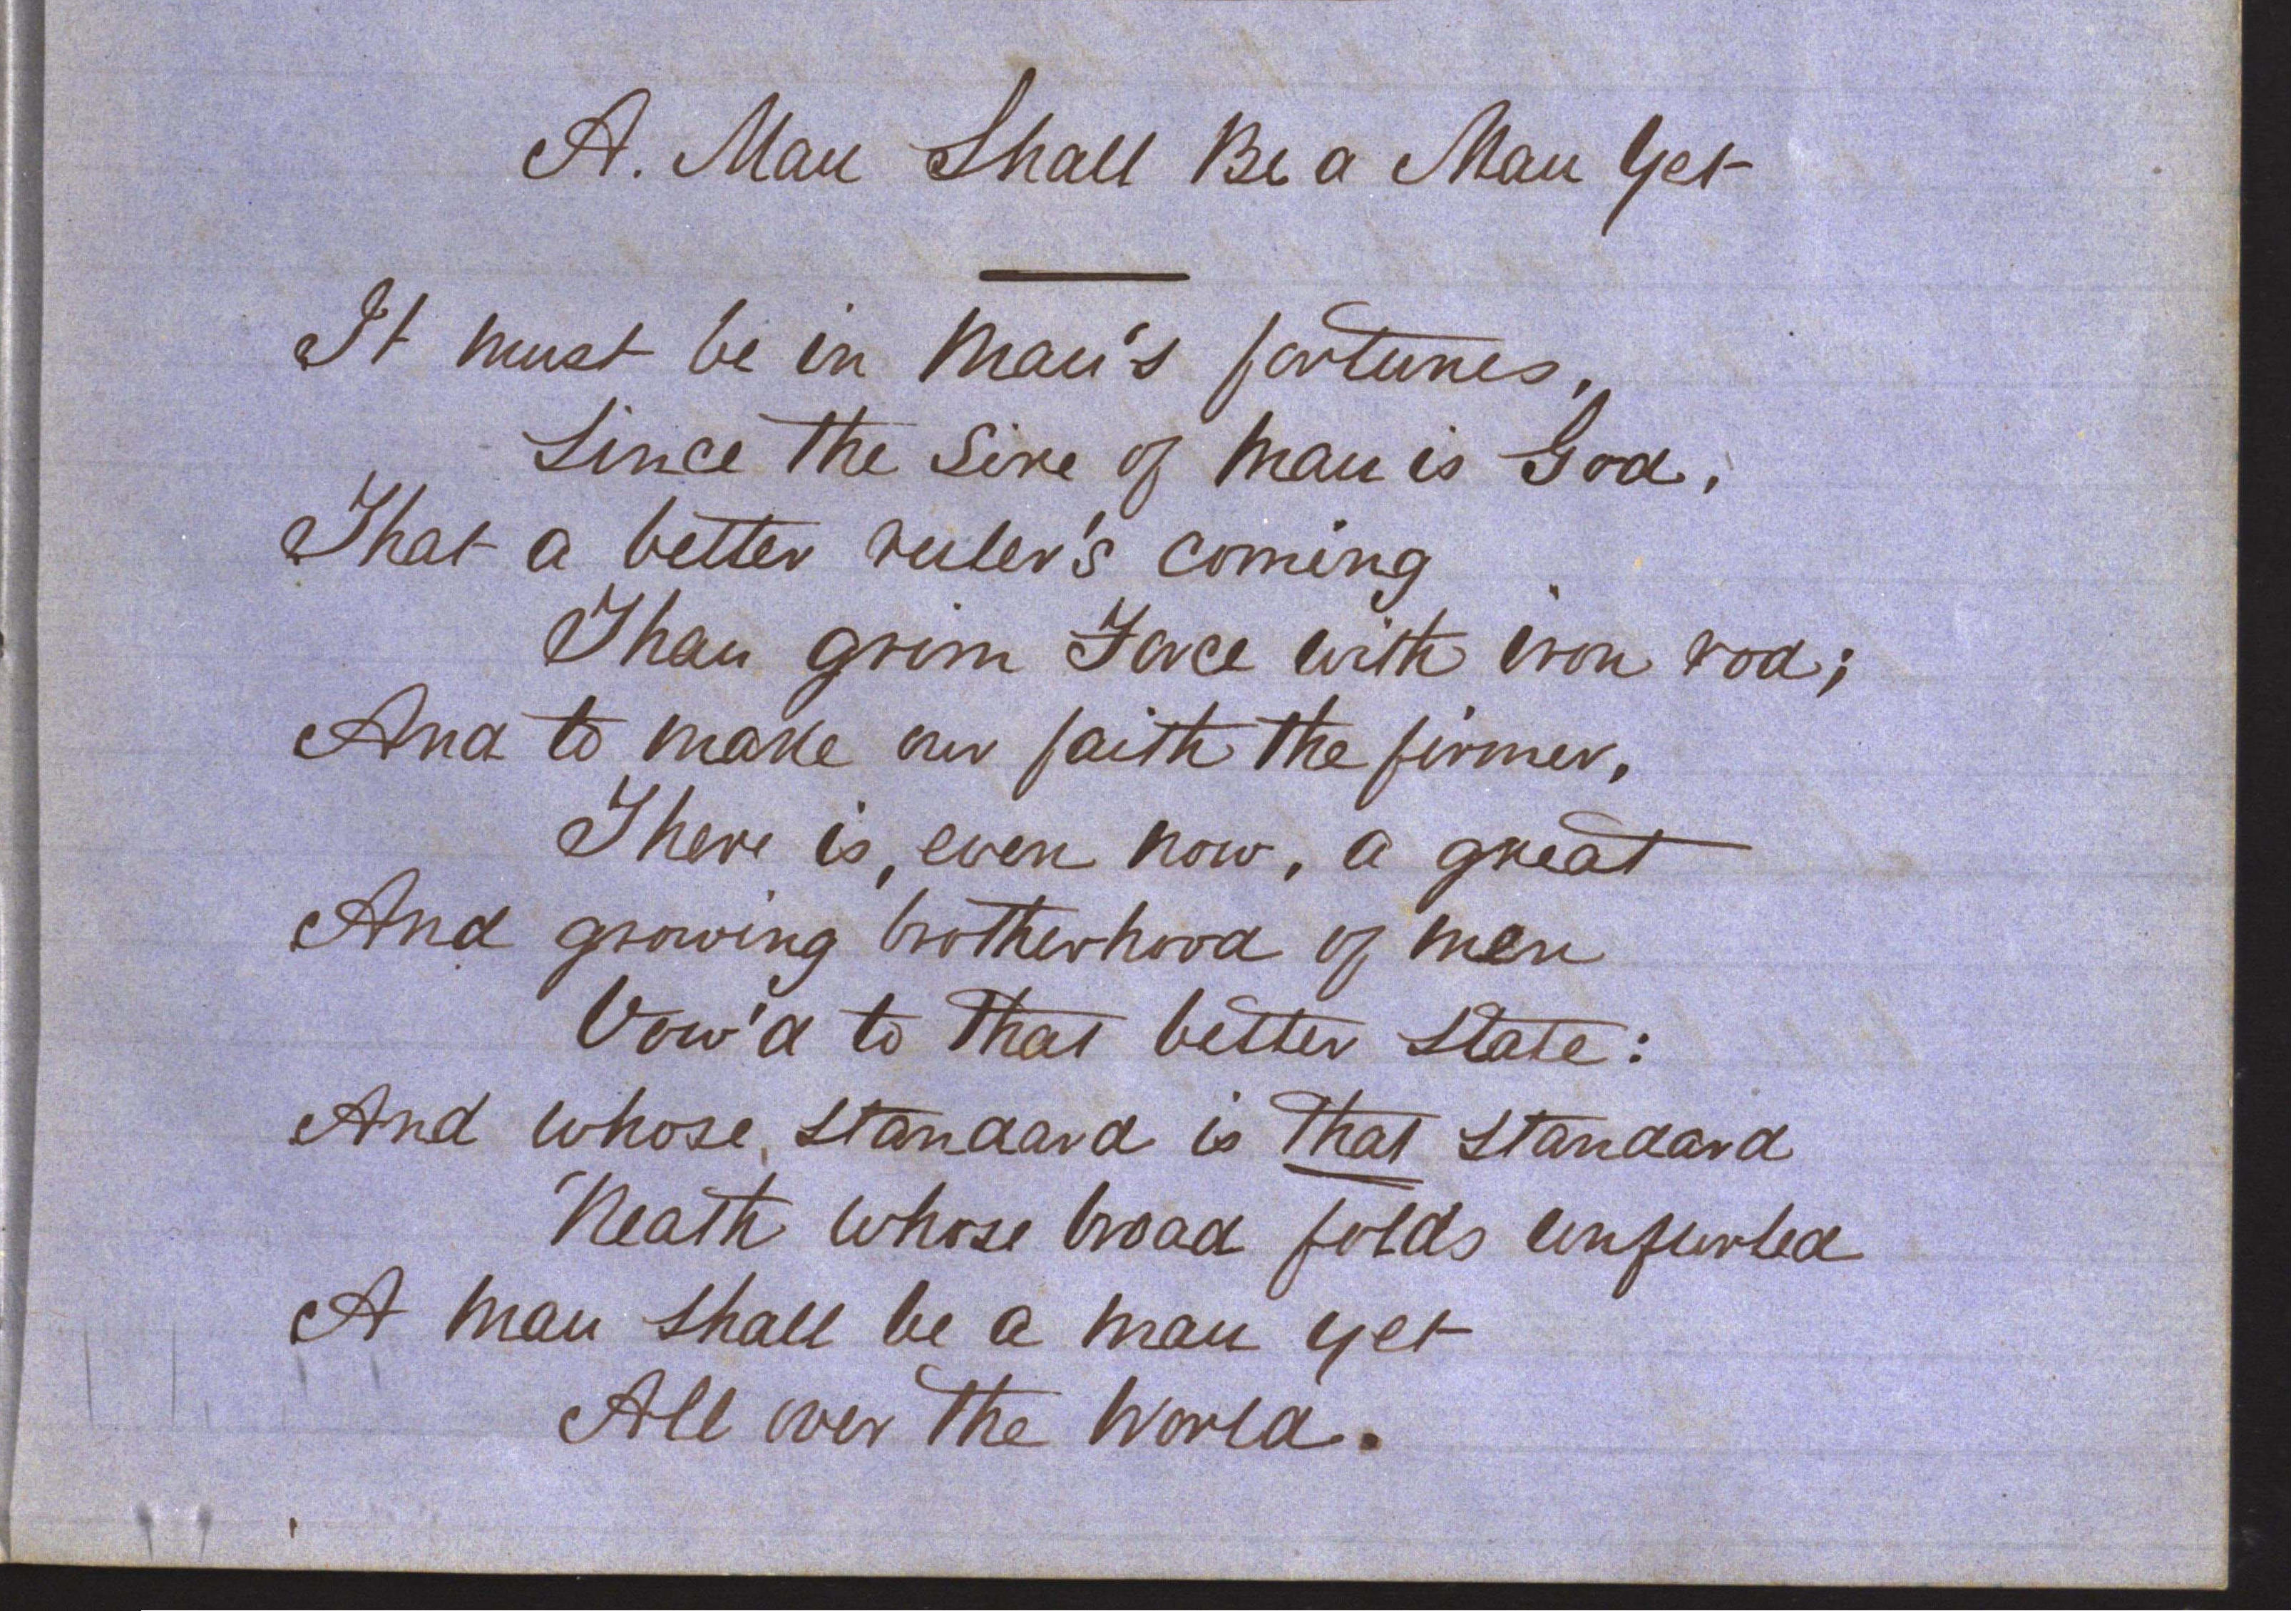 A. Man Shall Be a Man Yet
It must be in man's fortunes,
Since the Sire of man is God,
That a better ruler's coming
Than grim Force with iron rod;
And to make our faith the firmer,
There is, even now, a great
And growing brotherhood of men
Vow'd to that better state:
And whose standard is that standard
'Neath whose broad folds unfurled
A man shall be a man yet
All over the World.